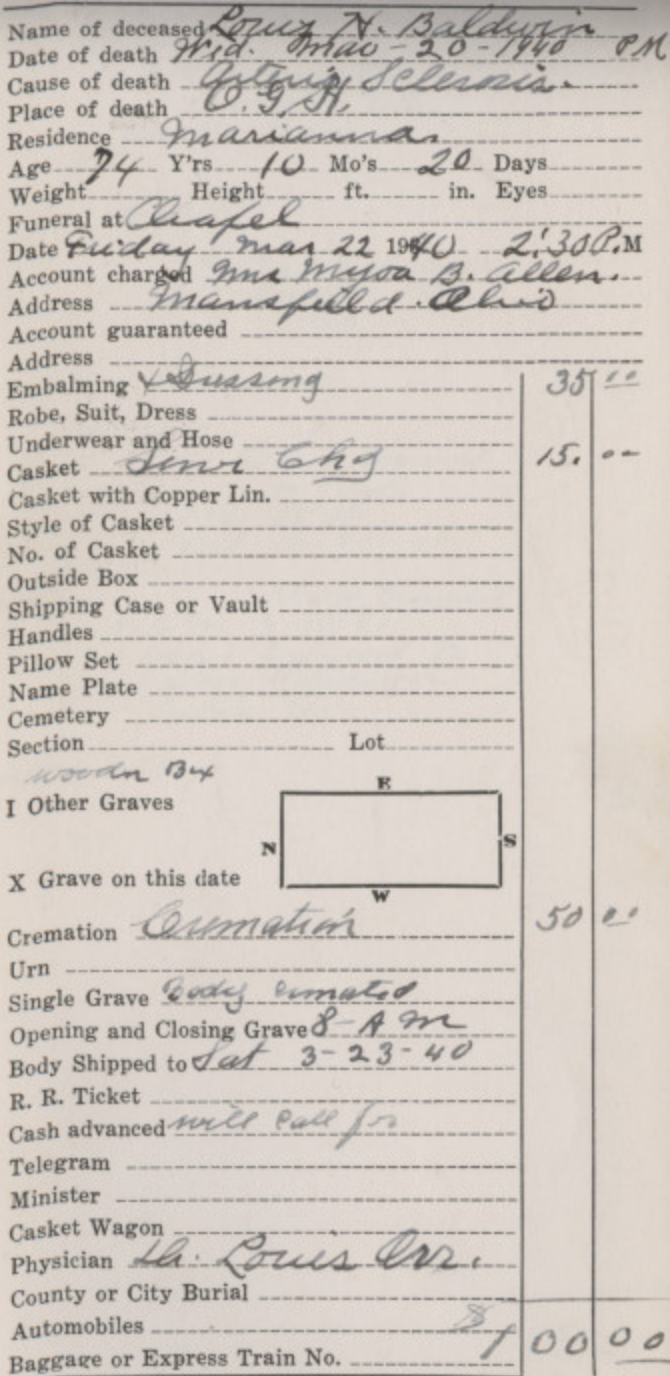 Name of deceased Louis H. Baldwin
Date of death Wed. Mar - 20 - 1940 P M
Cause of death Arterio Sclerosis.
Place of death O. G. H.
Residence Marianna
Age 74 Y'rs 10 Mo's 20 Days
Weight Height ft. in. Eyes
Funeral at Chapel
Date Friday Mar 22 1940 2:30 P.M
Account charged Mrs Myra B. Allen.
Address Mansfield. Ohio
Account guaranteed
Address
Embalming & Dressing 35 00
Robe, Suit, Dress
Underwear and Hose
Casket Serv Chg 15. 00
Casket with Copper Lin.
Style of Casket
No. of Casket
Outside Box
Shipping Case or Vault
Handles
Pillow Set
Name Plate
Cemetery
Section Lot
wooden Box
E
I Other Graves
N S
X Grave on this date
W
Cremation Cremation 50 00
Urn
Single Grave Body cremated
Opening and Closing Grave 8 - A m
Body Shipped to Sat 3-23-40
R. R. Ticket
Cash advanced will call for
Telegram
Minister
Casket Wagon
Physician Dr. Louis Orr.
County or City Burial
Automobiles $100 00
Baggage or Express Train No.